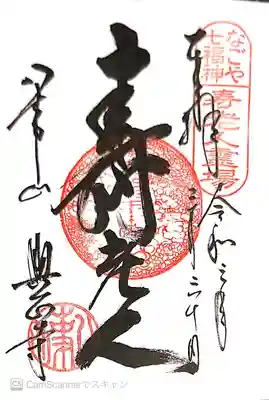 なごや
七福神
寿老人霊場
奉拝
令和三年
壽老人
八事山
興正寺
CamScannerでスキャン